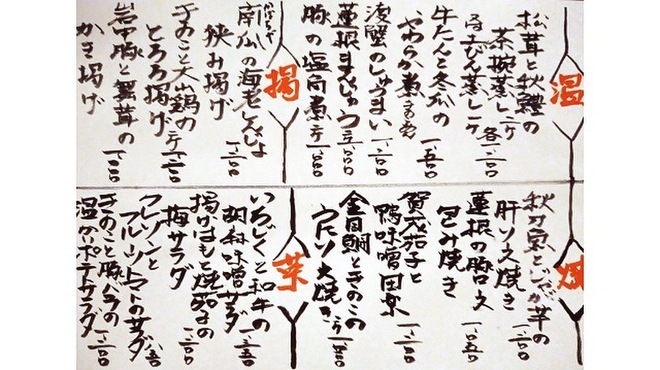 温
松茸と秋鱧の
茶碗蒸し
土びん蒸し 各
牛たんと冬瓜の
やわらか煮 一、五〇〇
渡蟹のしゅうまい 一、二〇〇
蓮根まんじゅう 一、〇〇〇
豚の塩角煮
揚
南瓜の海老しんじょ
挟み揚げ 一、二〇〇
きのこと大山鶏の
とろろ揚げ 一、二〇〇
岩中豚と舞茸の
かき揚げ 一、二〇〇
焼
秋刀魚とじゃが芋の
肝ソース焼き 一、二〇〇
蓮根の豚ロース
包み焼き 一、〇五〇
賀茂茄子と
鴨味噌田楽 一、二〇〇
金目鯛ときのこの
うにソース焼き
菜
いちじくと和牛の
胡麻味噌サラダ
揚げはもと焼茄子の
梅サラダ 一、二〇〇
クレソンと
フルーツトマトのサラダ
きのこと豚バラの
温かいポテトサラダ 一、二〇〇